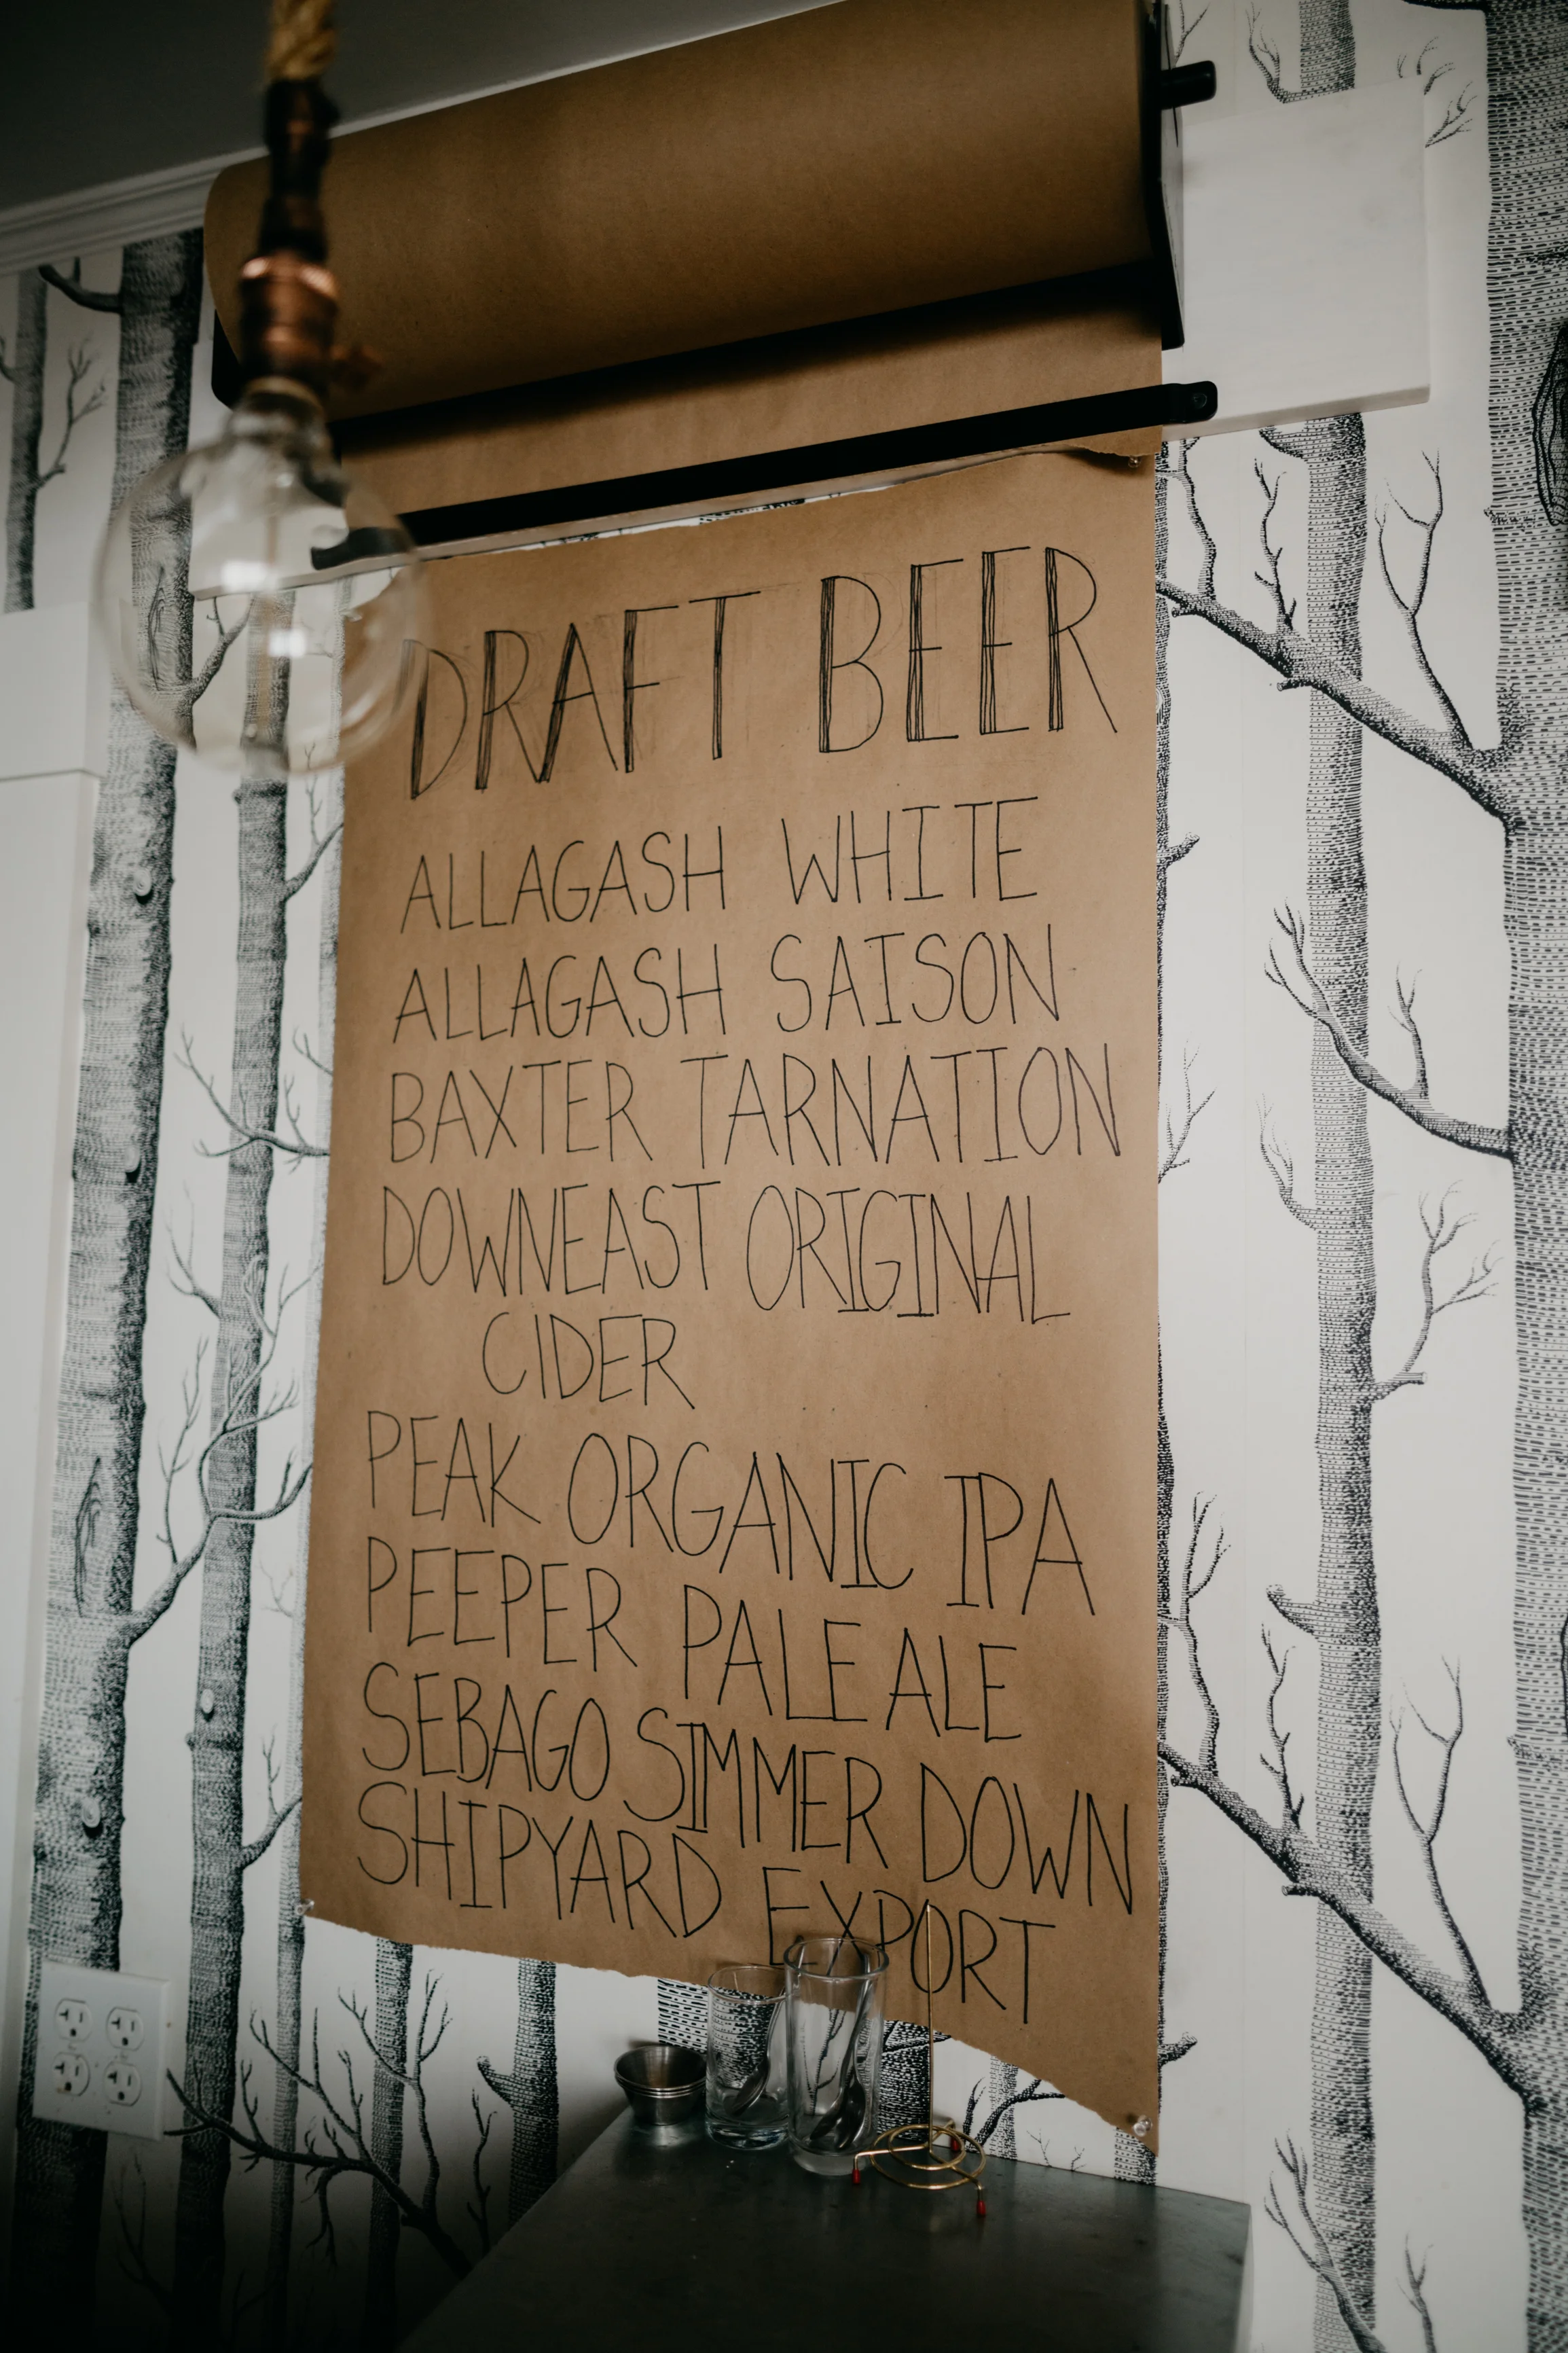 DRAFT BEER
ALLAGASH WHITE
ALLAGASH SAISON
BAXTER TARNATION
DOWNEAST ORIGINAL
CIDER
PEAK ORGANIC IPA
PEEPER PALE ALE
SEBAGO SIMMER DOWN
SHIPYARD EXPORT